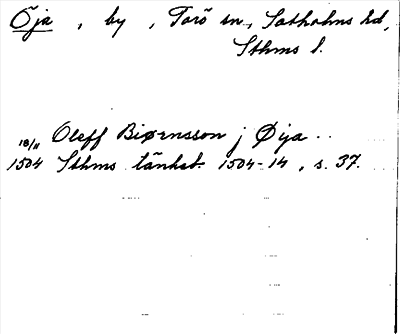 Öja , by , Torö sn, Sotholms hd,
Sthms l.
18/11 Oleff Biørnsson j Øya ..
1504 Sthms tänkeb. 1504-14, s. 37.